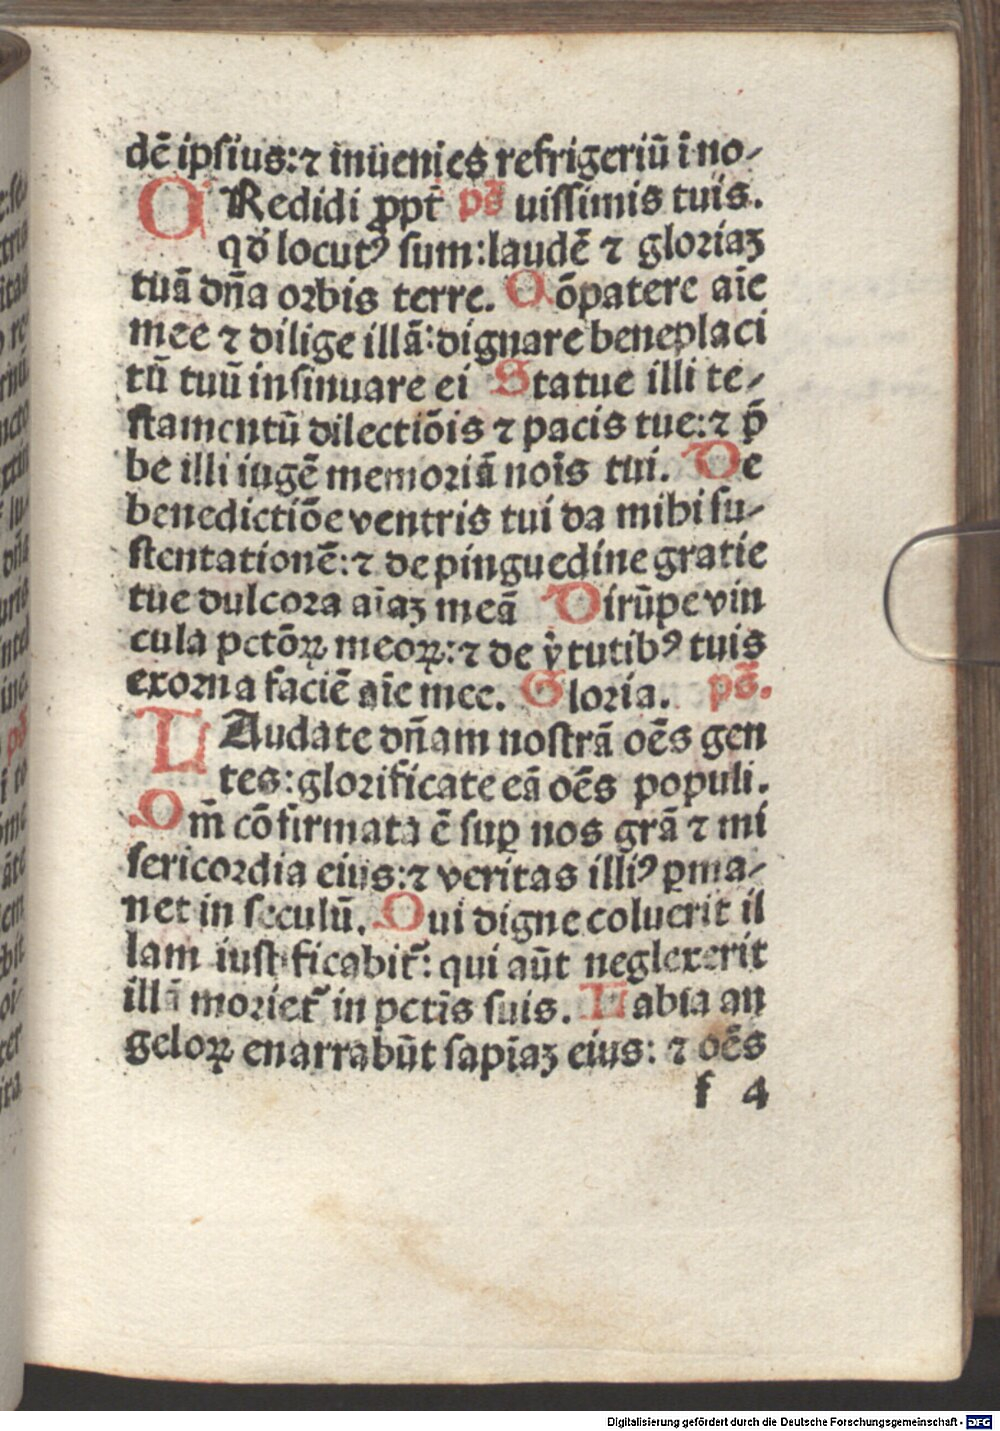 dē ipſius: ⁊ inuenies refrigeriū ī no-
CRedidi ꝓpt̄ ps̄ uiſſimis tuis.
qđ locutꝰ ſum: laudē ⁊ gloriaꝫ
tuā dn̄a orbis terre. Cōpatere aīe
mee ⁊ dilige illā: dignare beneplaci
tū tuū inſinuare ei Statue illi te-
ſtamentū dilectiōis ⁊ pacis tue: ⁊ p̄
be illi iugē memoriā noīs tui. De
benedictiōe ventris tui da mihi ſu-
ſtentationē: ⁊ de pinguedine gratie
tue dulcora aīaꝫ meā Dirūpe vin
cula pctōꝝ meoꝝ: ⁊ de v̄tutibꝰ tuis
exorna faciē aīe mee. Gloria. ps̄.
LAudate dn̄am noſtrā oēs gen
tes: glorificate eā oēs populi.
Qm̄ cōfirmata ē ſuꝑ nos grā ⁊ mi
ſericordia eius: ⁊ veritas illiꝰ ꝑma-
net in ſeculū. Qui digne coluerit il
lam iuſtificabit᷑: qui aūt neglexerit
illā moriet᷑ in pctīs ſuis. Labia an
geloꝝ enarrabūt ſapīaꝫ eius: ⁊ oēs
f 4
Digitalisierung gefördert durch die Deutsche Forschungsgemeinschaft - DFG